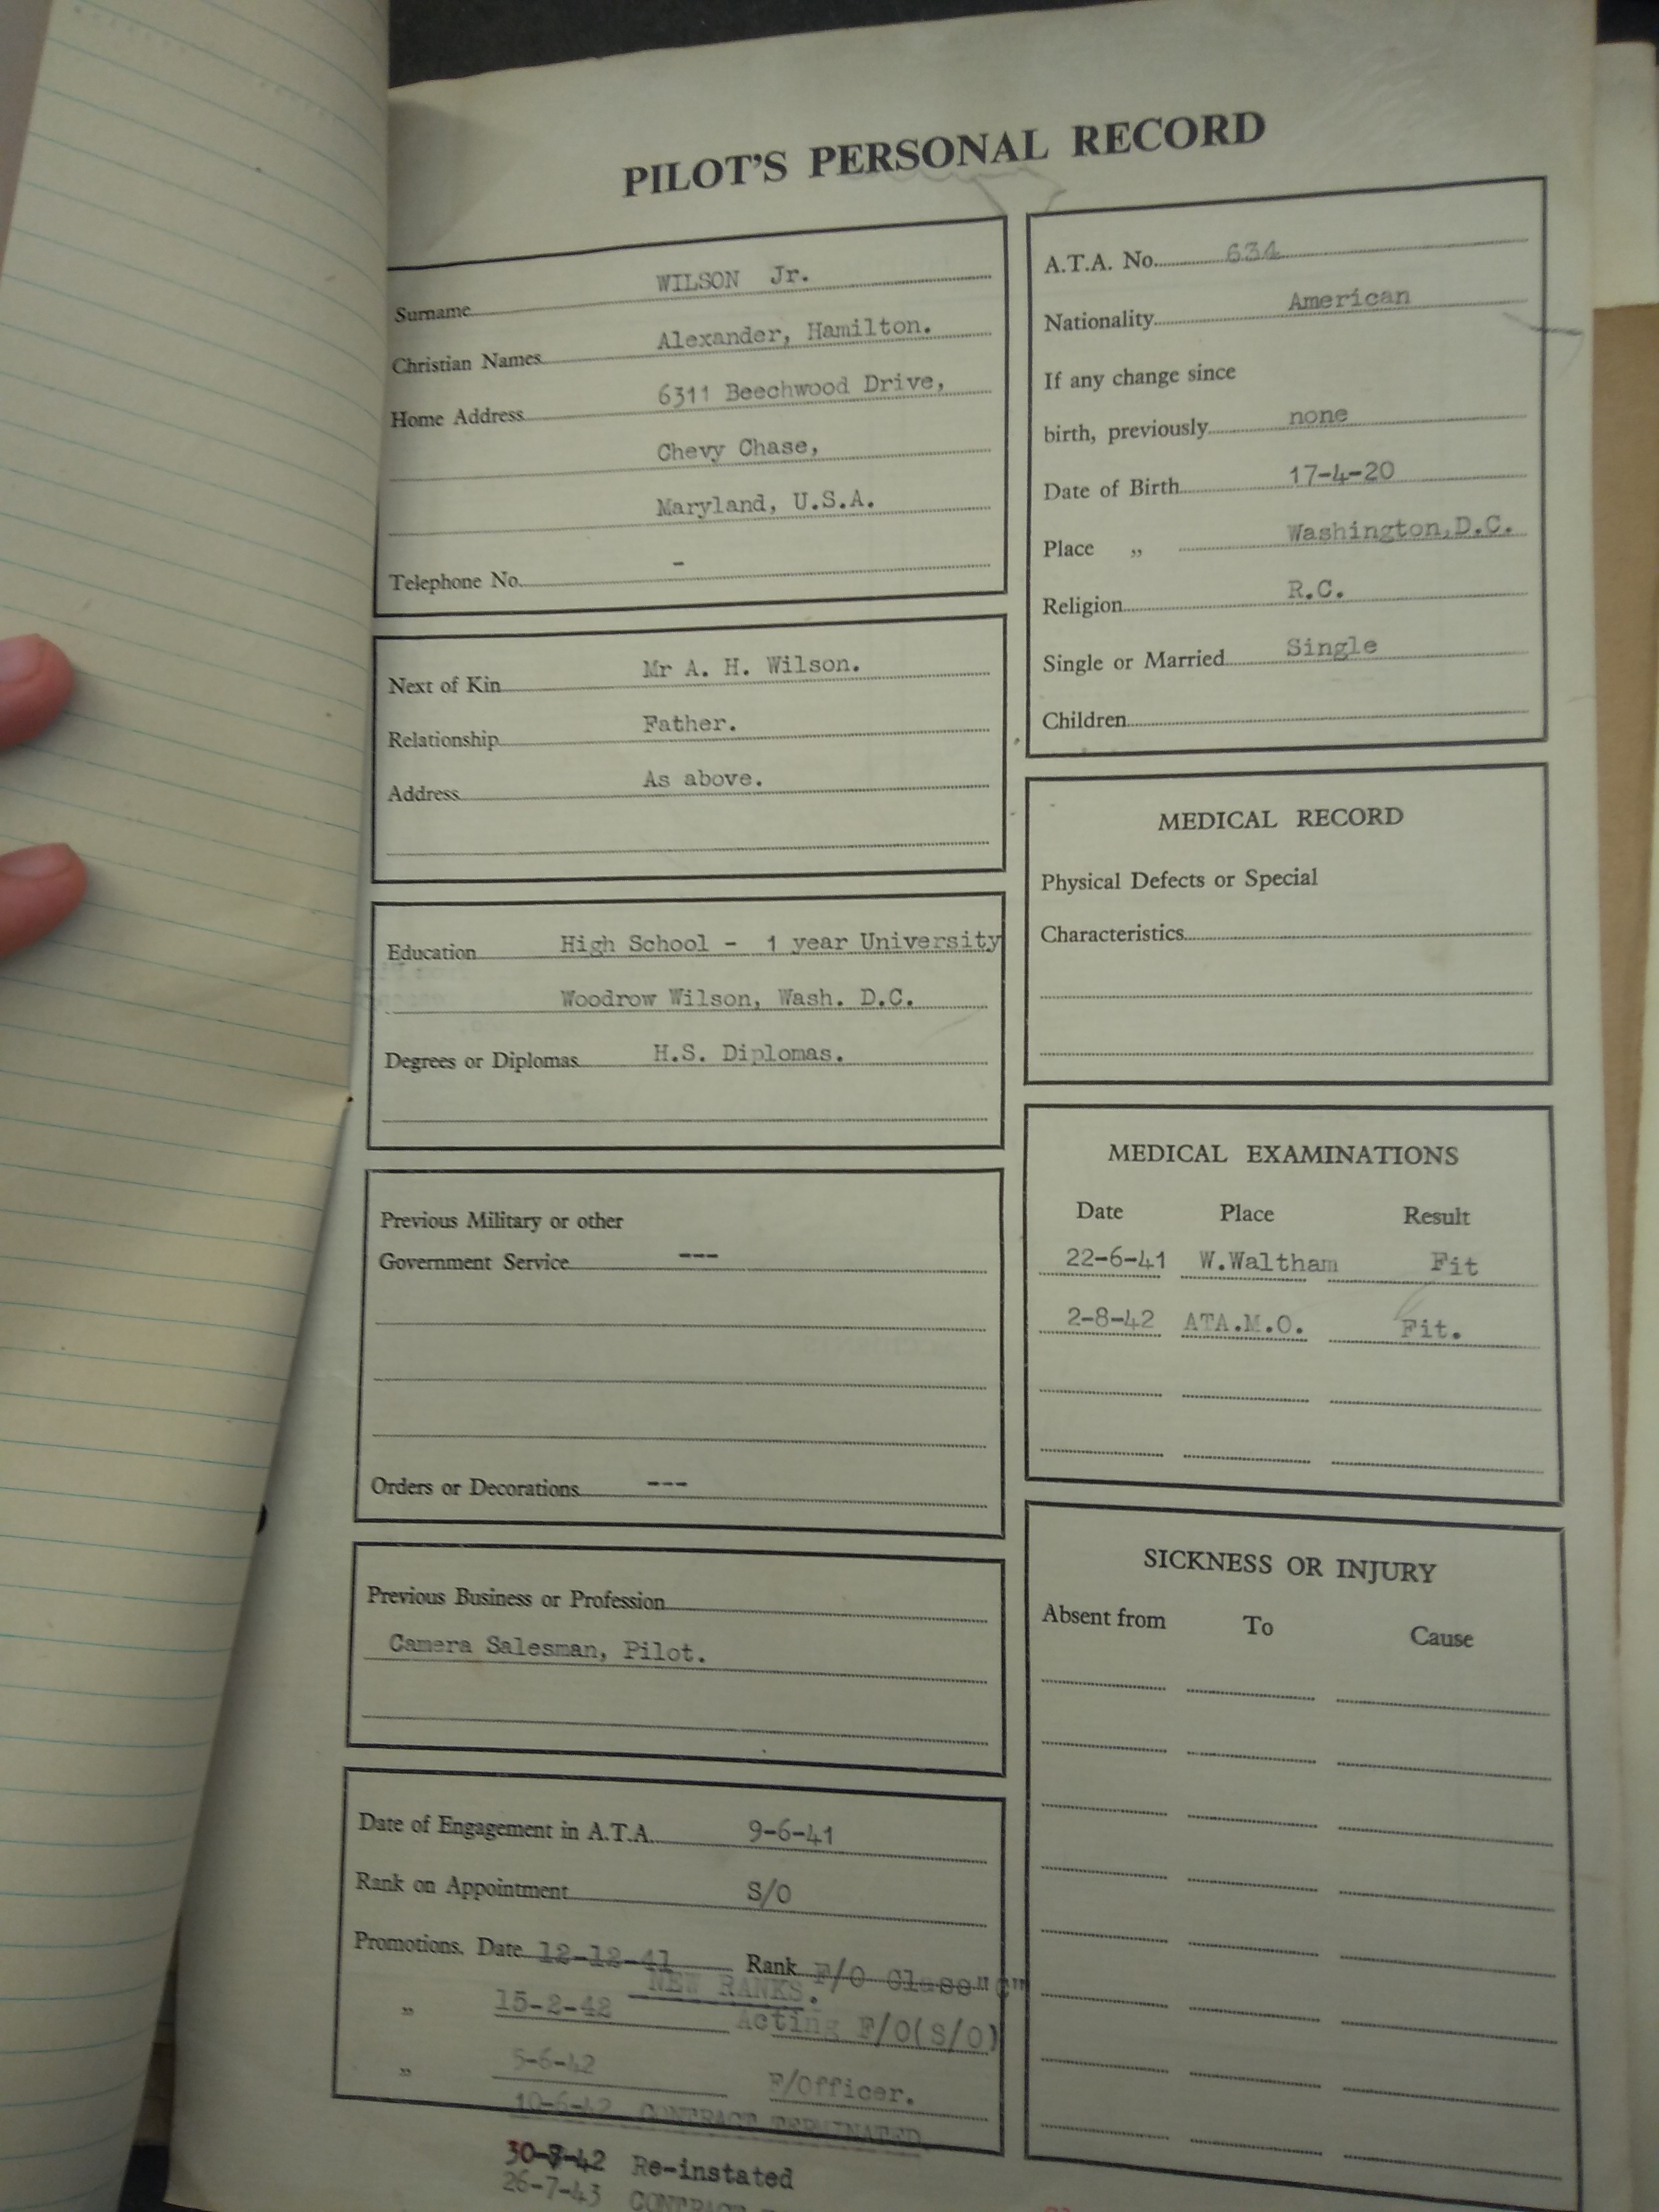 PILOT'S PERSONAL RECORD
Surname WILSON Jr.
Christian Names Alexander, Hamilton.
Home Address 6311 Beechwood Drive,
Chevy Chase,
Maryland, U.S.A.
Telephone No. -
Next of Kin Mr A. H. Wilson.
Relationship Father.
Address As above.
Education High School - 1 year University
Woodrow Wilson, Wash. D.C.
Degrees or Diplomas H.S. Diplomas.
Previous Military or other
Government Service ---
Orders or Decorations ---
Previous Business or Profession
Camera Salesman, Pilot.
Date of Engagement in A.T.A. 9-6-41
Rank on Appointment S/O
Promotions. Date 12-12-41 Rank F/O Class "C"
NEW RANKS.
„ 15-2-42 Acting F/O(S/O)
„ 5-6-42 F/Officer.
10-6-42 CONTRACT TERMINATED.
30-8-42 Re-instated
26-7-43 CONTRACT
A.T.A. No. 634
Nationality American
If any change since
birth, previously none
Date of Birth 17-4-20
Place „ Washington,D.C.
Religion R.C.
Single or Married Single
Children
MEDICAL RECORD
Physical Defects or Special
Characteristics
MEDICAL EXAMINATIONS
Date Place Result
22-6-41 W.Waltham Fit
2-8-42 ATA.M.O. Fit.
SICKNESS OR INJURY
Absent from To Cause